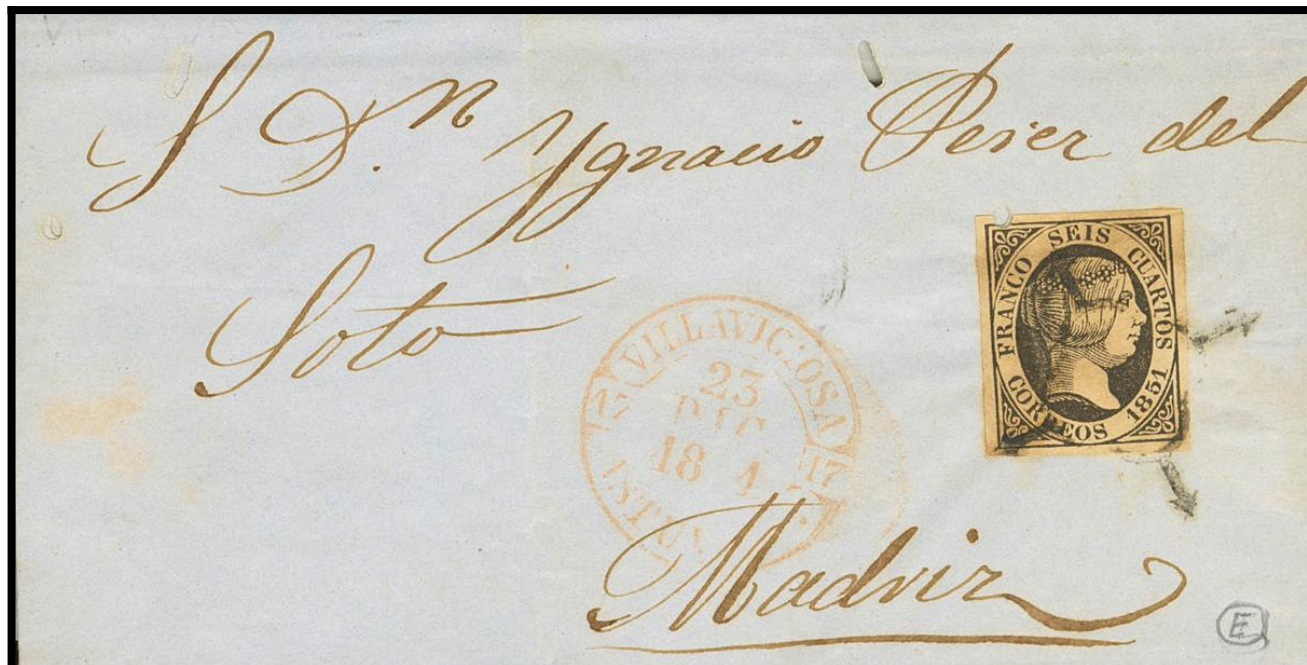 S D.n Ygnacio Perez del
Soto
FRANCO SEIS CUARTOS
CORREOS 1851
VILLAVICIOSA
17 17
23
DIC
18 1
Madriz
E